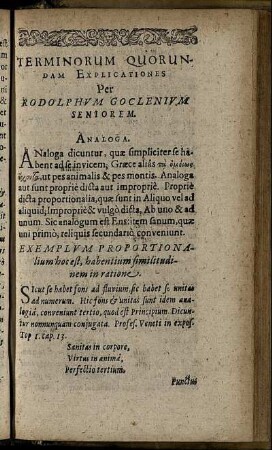 TERMINORUM QUORUN-
DAM EXPLICATIONES
Per
RODOLPHVM GOCLENIVM
SENIOREM.
ANALOGA.
ANaloga dicuntur, quæ simpliciter se ha-
bent ad se invicem, Græce
ut pes animalis & pes montis. Analoga
aut sunt propriè dicta aut impropriè. Propriè
dicta proportionalia, quæ sunt in Aliquo vel ad
aliquid, Impropriè & vulgò dicta, Ab uno & ad
unum. Sic analogum est Ens: item sanum, quæ
uni primò, reliquis secundariò conveniunt.
EXEMPLVM PROPORTIONA-
lium hoc est, habentium similitudi-
nem in ratione.
SIcut se habet fons ad fluvium, sic habet se unitas
ad numerum. Hic fons & unitas sunt idem ana-
logiâ, conveniunt tertio, quod est Principium. Dicun-
tur nonnunquam conjugata. Profes. Veneti in expos.
Top 1. cap. 13.
Sanitas in corpore,
Virtus in animâ,
Perfectio tertium.
Punctus